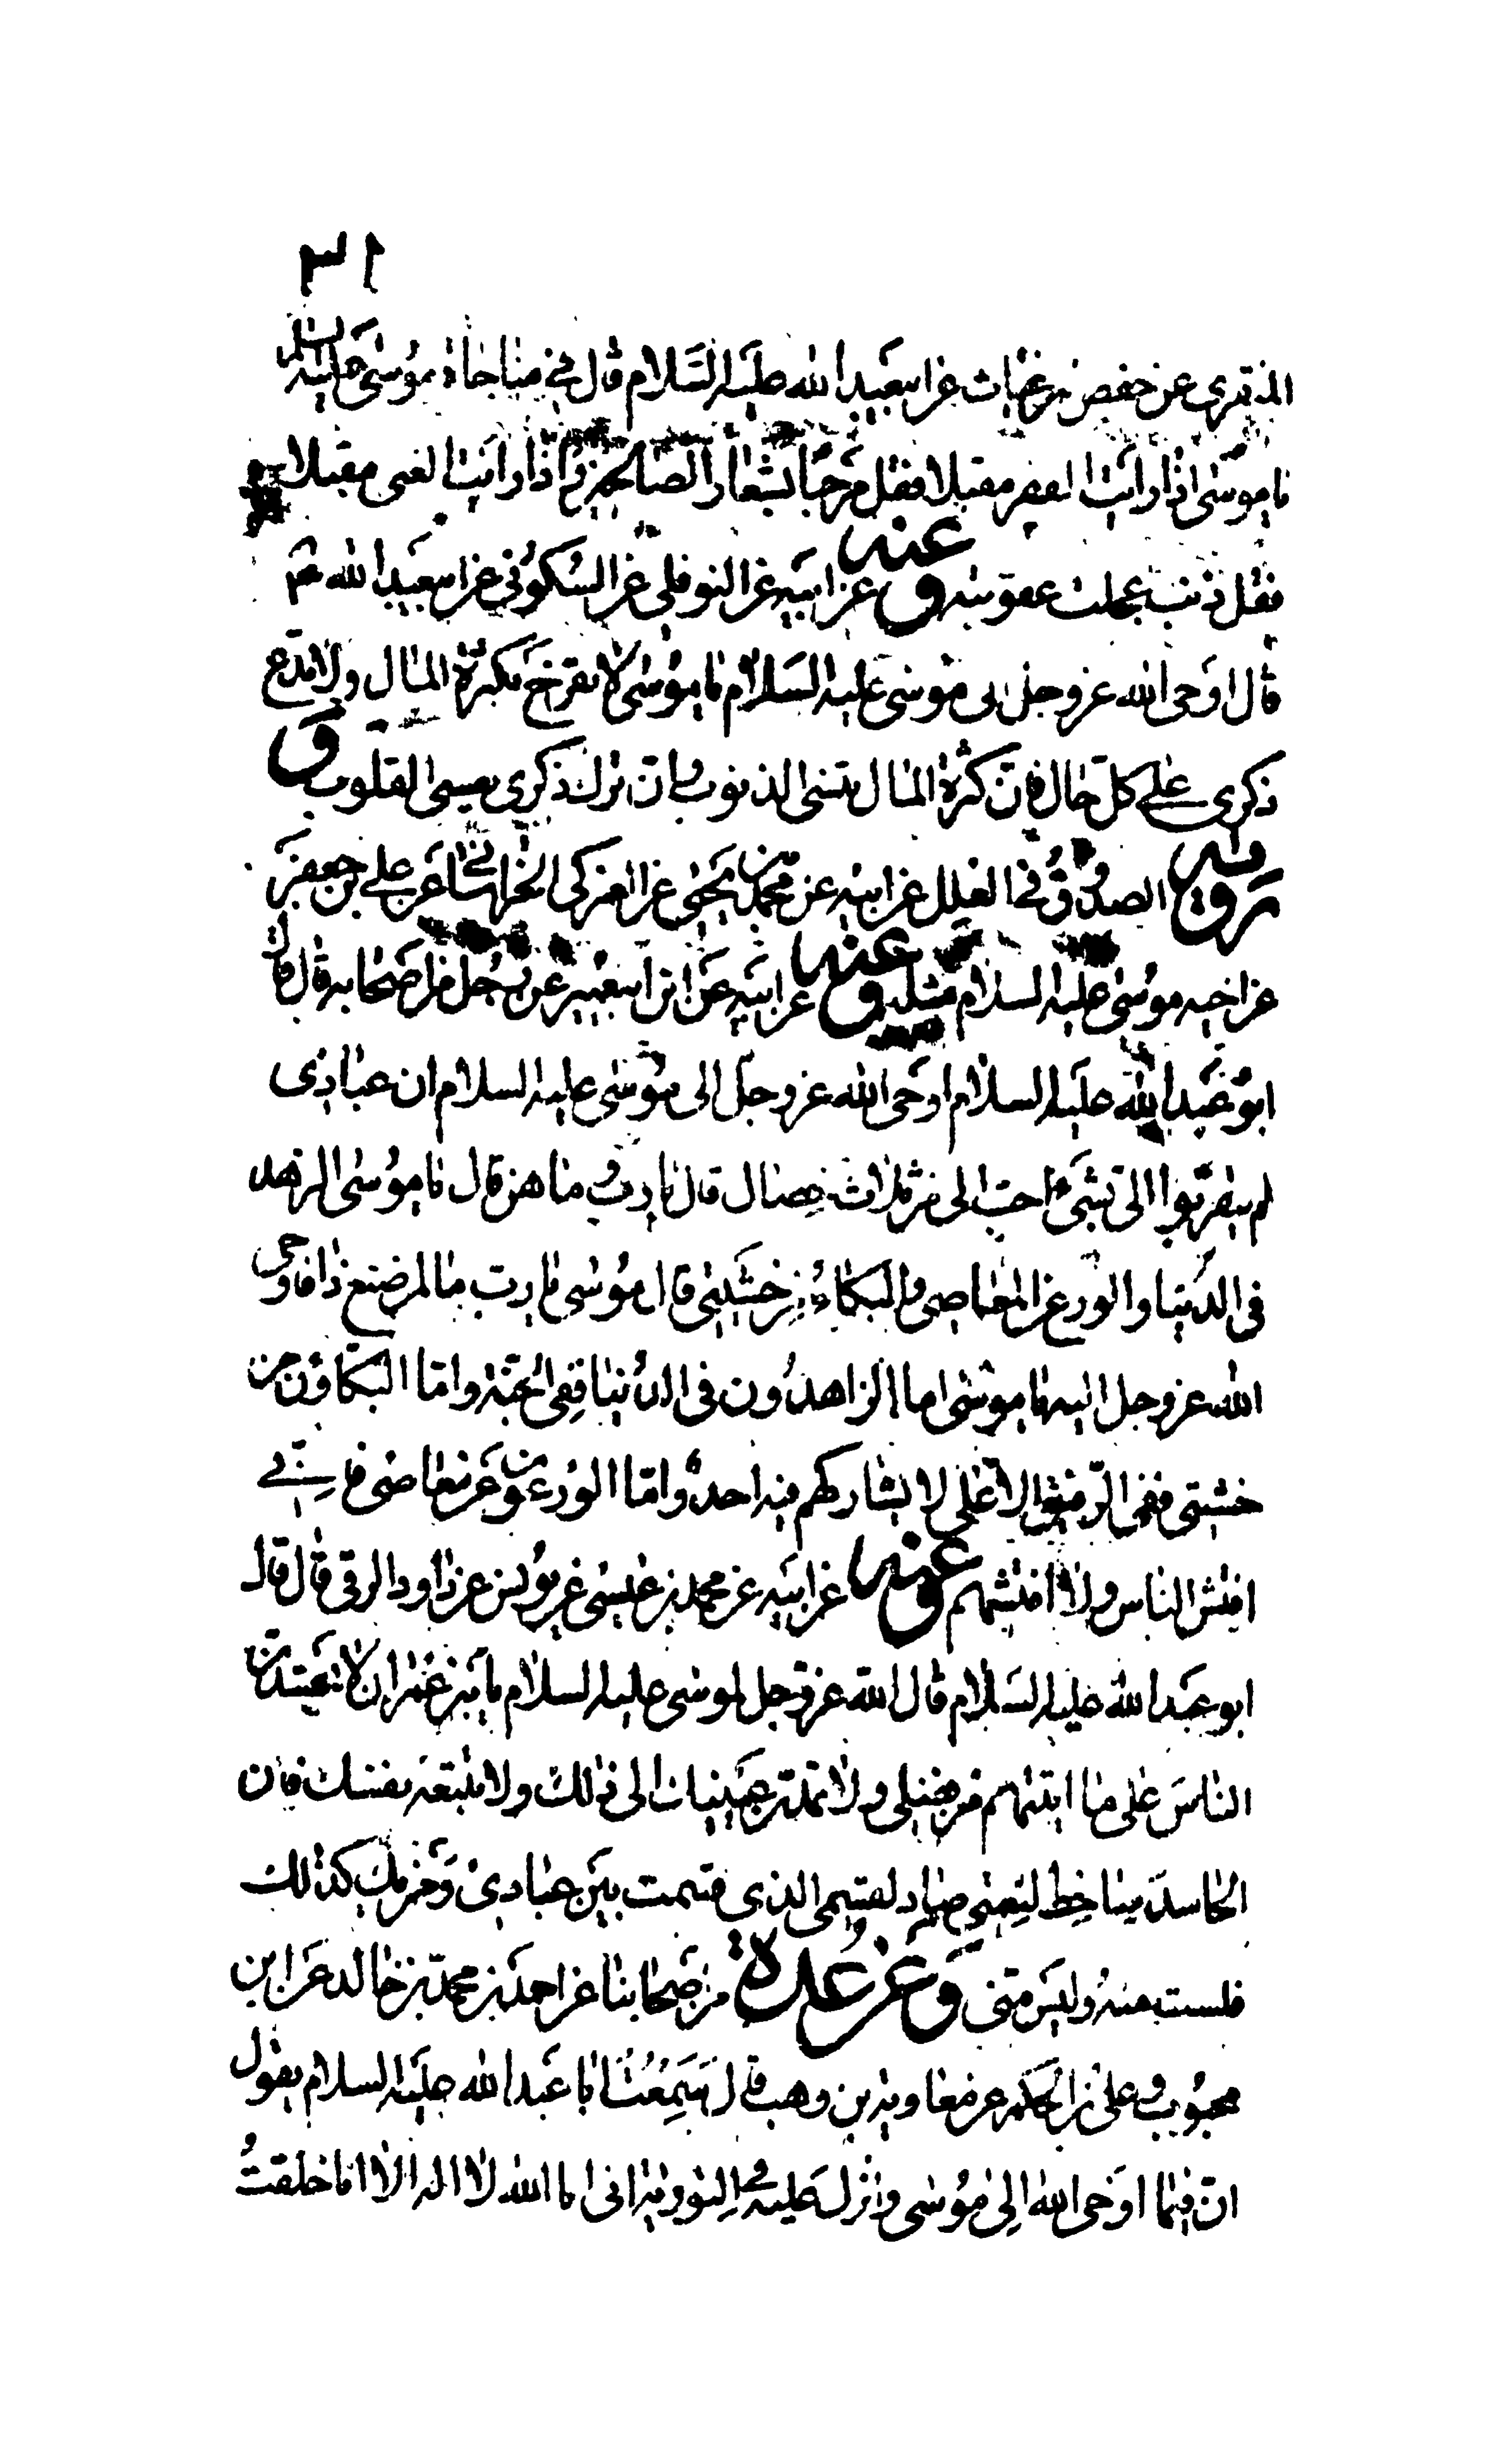 ٣١
المنقري عن حفص بن غياث عن ابيعبدالله عليه السلام قال في مناجاة موسى عليه السلم
يا موسى اذا رايت الفقر مقبلا فقل مرحبا بشعار الصالحين واذا رايت الغنى مقبلا
فقل ذنب عجلت عقوبته وعنه عن ابيه عن النوفلي عن السكوني عن ابيعبدالله ع
قال اوحى الله عز وجل الى موسى عليه السلام يا موسى لا تفرح بكثرة المال ولا تدع
ذكرى على كل حال فان كثرة المال تنسى الذنوب وان ترك ذكرى يقسى القلوب و
رواه الصدوق في العلل عن ابيه عن محمد بن يحيى عن العمركي الخراساني عن علي بن جعفر
عن اخيه موسى عليه السلام مثله وعنه عن ابيه عن ابن ابيعمير عن رجل من اصحابه قال قال
ابو عبدالله عليه السلام اوحى الله عز وجل الى موسى عليه السلام ان عبادى
لم يتقربوا الى بشيء احب الى من ثلاث خصال قال يا رب وما هن قال يا موسى الزهد
فى الدنيا والورع عن المعاصى والبكاء من خشيتى قال موسى يا رب ما لمن صنع ذا فاوحى
الله عز وجل اليه يا موسى اما الزاهدون فى الدنيا ففى الجنة واما البكاؤن من
خشيتى ففى الرفيع الاعلى لا يشاركهم فيه احد واما الورعون عن معاصى فانى
افتش الناس ولا افتشهم وعنه عن ابيه عن محمد بن عيسى عن يونس عن داود الرقى قال قال
ابو عبدالله عليه السلام قال الله عز وجل لموسى عليه السلام يا بن عمران لا تحسدن
الناس على ما اتيتهم من فضلى ولا تمدن عينيك الى ذلك ولا تتبعه نفسك فان
الحاسد ساخط لنعمى صاد لقسمى الذى قسمت بين عبادى ومن يك كذلك
فلست منه وليس منى وعن عدة من اصحابنا عن احمد بن محمد بن خالد عن ابن
محبوب وعلى بن الحكم عن معاوية بن وهب قال سمعت ابا عبدالله عليه السلام يقول
ان فيما اوحى الله الى موسى وانزل عليه في التورية انى انا الله لا اله الا انا خلقت